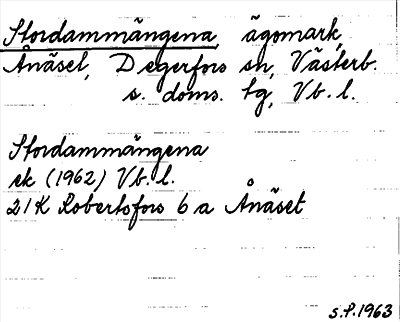 Stordammängena, ägomark,
Ånäset, Degerfors sn, Västerb.
s. doms. tg, Vb. l.
Stordammängena
ek (1962) Vb. l.
21K Robertsfors 6 a Ånäset
S.P.1963